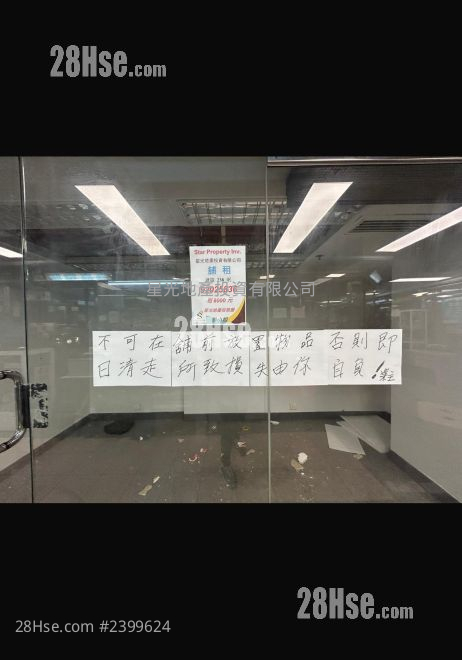 28Hse.com
Star Property Inv.
星光地產投資有限公司
舖 租
星光地產投資有限公司
28Hse.com
不可在舖前放置物品否則即
日清走所致損失由你自負！業主
28Hse.com
28Hse.com #2399624